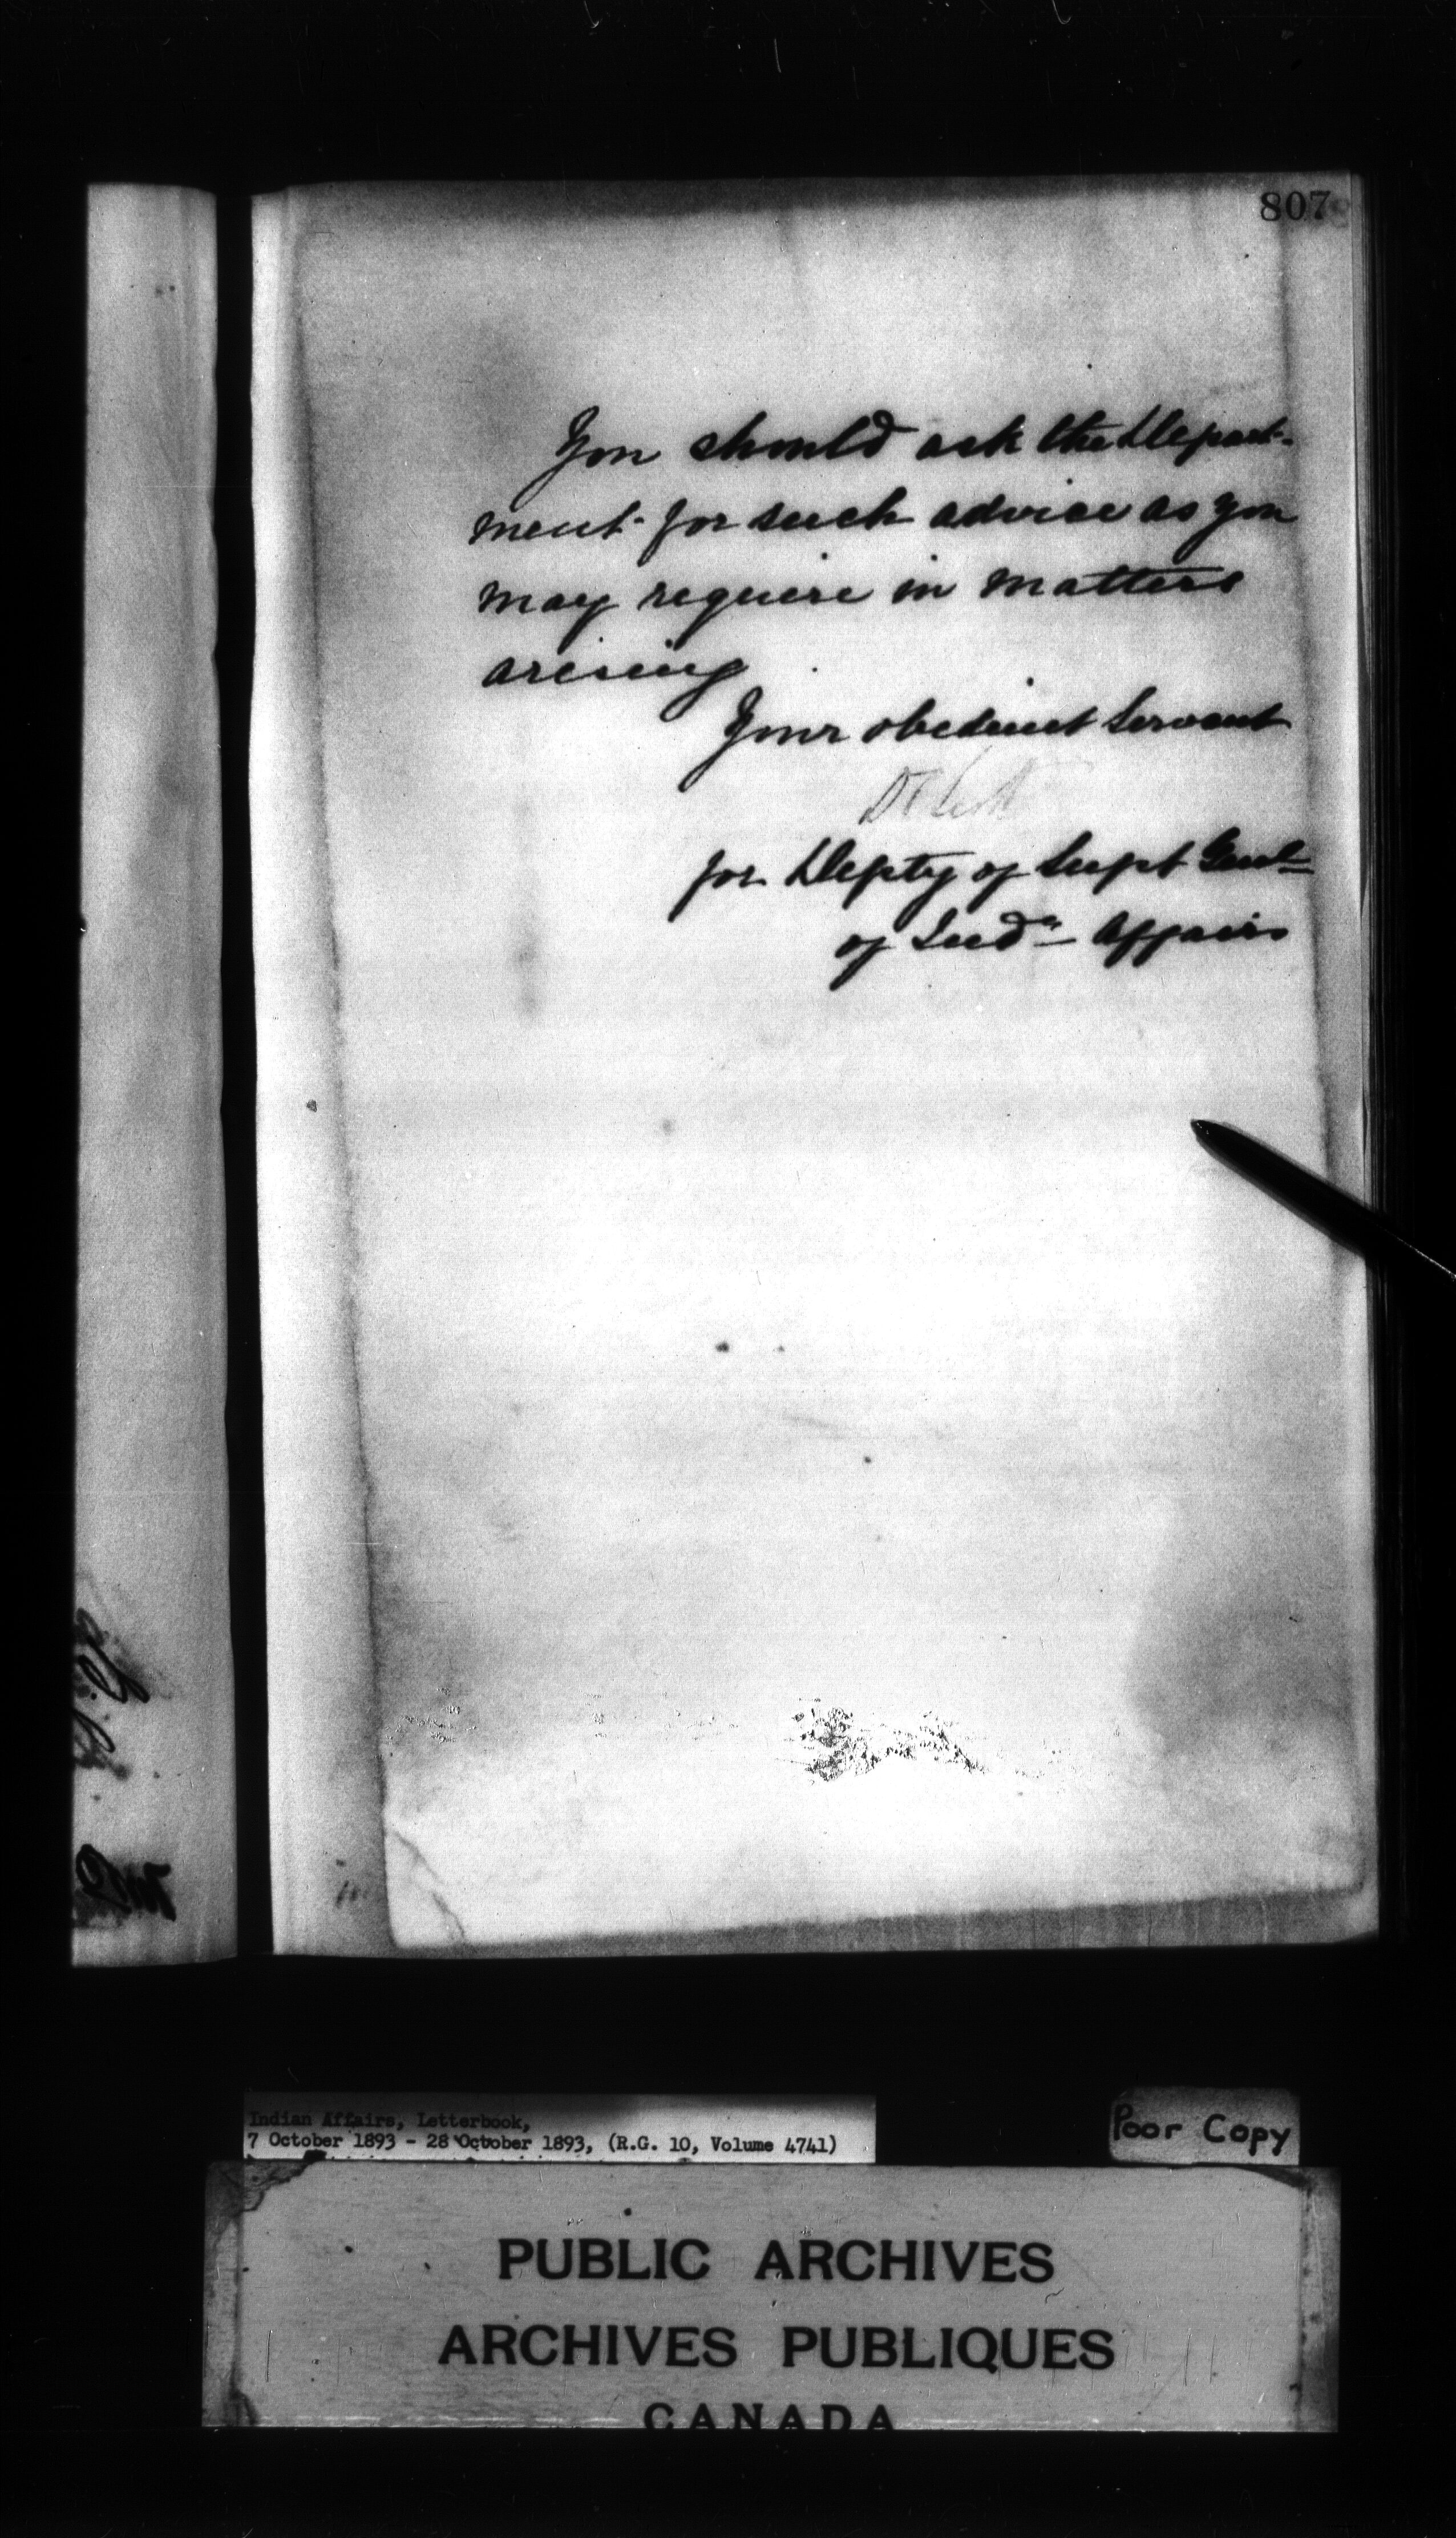 807
You should ask the Depart-
ment for such advice as you
may require in matters
arising
Your obedient Servant
for Depty of Supt Genl
of Indn Affairs
Indian Affairs, Letterbook,
7 October 1893 - 28 October 1893, (R.G. 10, Volume 4741)
Poor Copy
PUBLIC ARCHIVES
ARCHIVES PUBLIQUES
CANADA